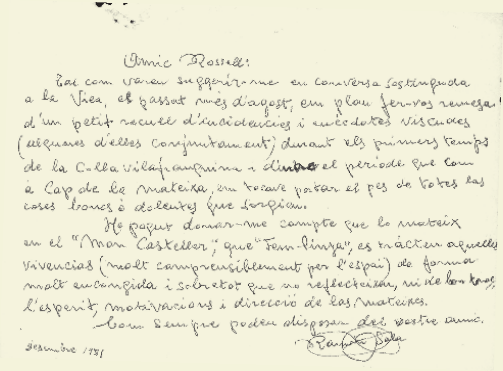 Amic Rossell:
Tal com vareu suggerir-me en conversa sostinguda
a la Vica, el passat mes d'agost, em plau fer-vos remesa
d'un petit recull d'incidencies i anècdotes viscudes
(algunes d'elles conjuntament) durant els primers temps
de la Colla vilafranquina i dintre el període que com
à Cap de la mateixa, em tocava portar el pes de totes las
coses bones ò dolentes que sorgien.
He pogut donar-me compte que lo mateix
en el "Mon Casteller", que "Fem-pinya", es tracten aquelles
vivencias (molt comprensiblement per l'espai) de forma
molt encongida i sobretot que no reflecteixen, ni de bon tros,
l'esperit, motivacions i direcció de las mateixes.
Com sempre podeu disposar del vostre amic.
Desembre 1981
Sala